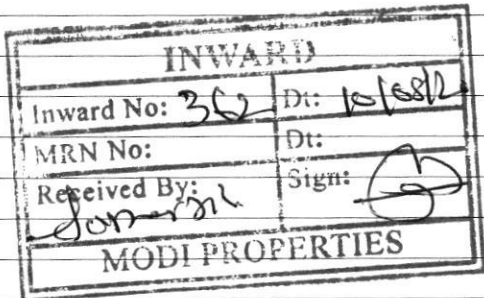 INWARD
Inward No: 362 Dt: 10/08/2
MRN No: Dt:
Received By: Sign:
MODI PROPERTIES